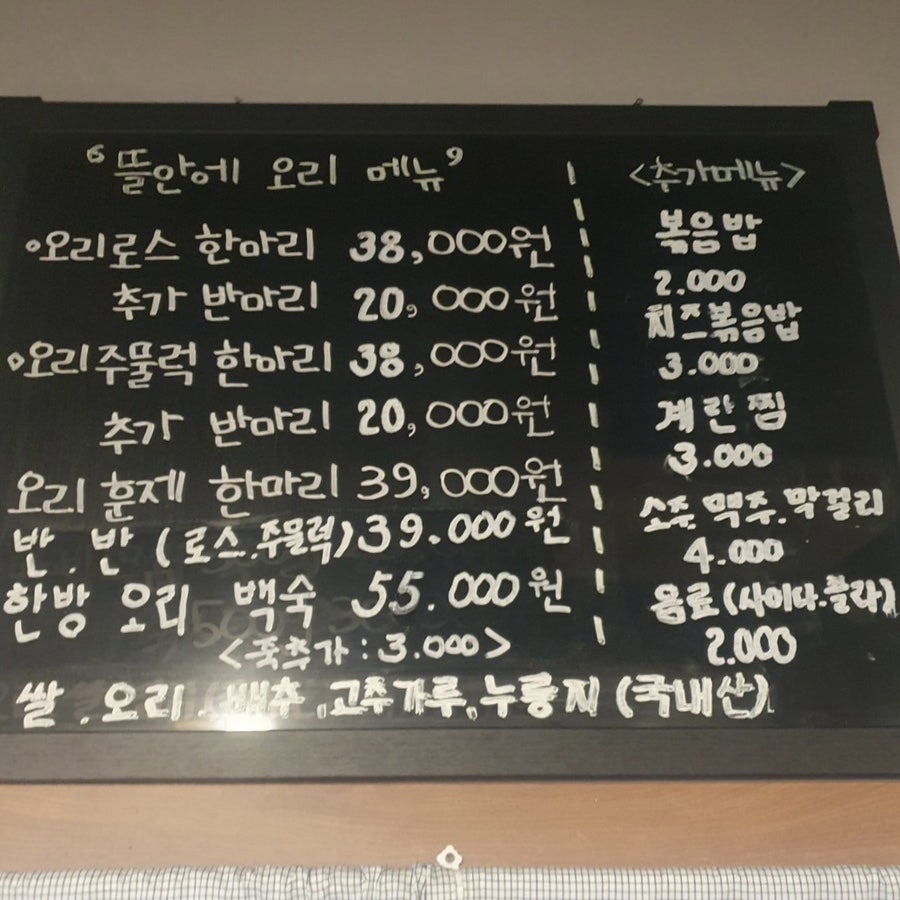 “뜰안에 오리 메뉴”
◦오리로스 한마리 38,000원
추가 반마리 20,000원
◦오리주물럭 한마리 38,000원
추가 반마리 20,000원
오리 훈제 한마리 39,000원
반.반 (로스.주물럭) 39.000원
한방 오리 백숙 55.000원
<죽추가 : 3.000>
쌀.오리.배추.고추가루.누룽지 (국내산)
<추가메뉴>
볶음밥
2.000
치즈볶음밥
3.000
계란찜
3.000
소주.맥주.막걸리
4.000
음료(사이다.콜라)
2.000